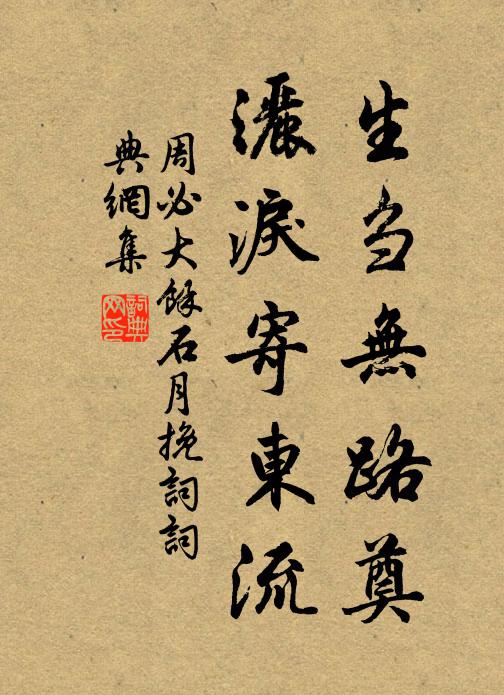 生刍無路奠
灑淚寄東流
周必大餘石月挽詞詞
典網集
詞典
网印